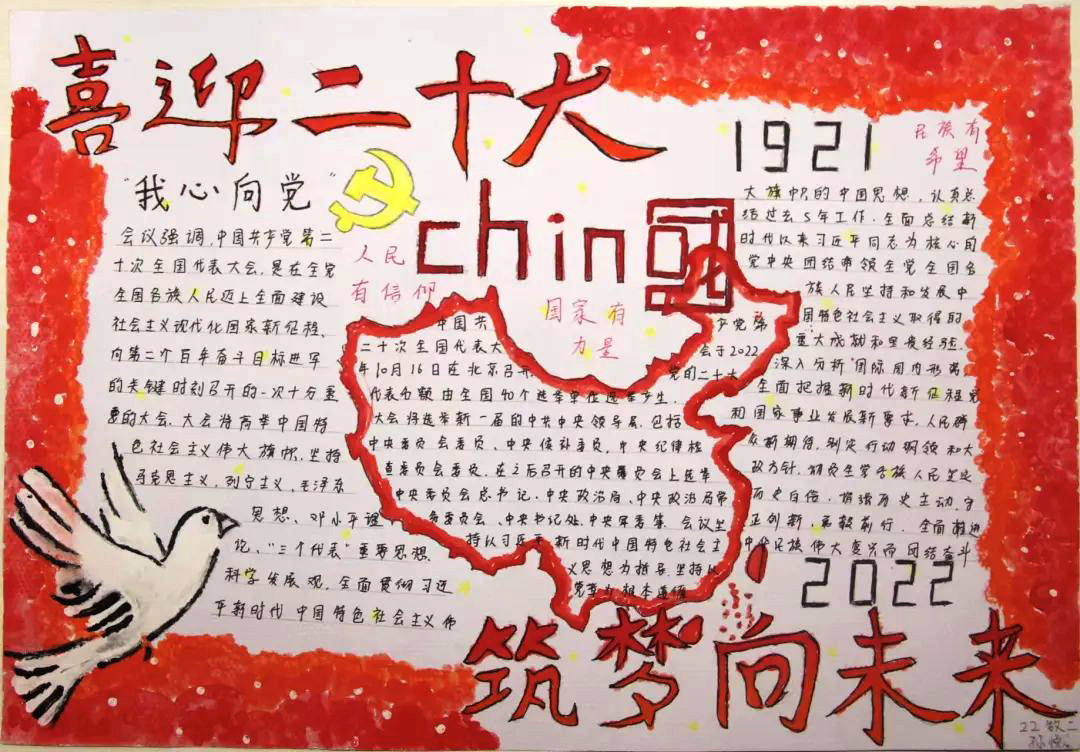 喜迎二十大
"我心向党"
会议强调,中国共产党第二
十次全国代表大会,是在全党
全国各族人民迈上全面建设
社会主义现代化国家新征程,
向第二个百年奋斗目标进军
的关键时刻召开的一次十分重
要的大会.大会将高举中国特
色社会主义伟大旗帜,坚持
马克思主义,列宁主义,毛泽东
思想、邓小平理
论、"三个代表"重要思想,
科学发展观,全面贯彻习近
平新时代中国特色社会主义伟
人民
有信仰
china
国
国家有
力量
中国共产党第
二十次全国代表大会于2022
年10月16日在北京召开.党的二十大
代表名额由全国40个选举单位选举产生.
大会将选举新一届的中共中央领导层,包括
中央委员会委员、中央候补委员,中央纪律检
查委员会委员,在之后召开的中央委员会上选举
中央委员会总书记、中央政治局、中央政治局常
务委员会、中央书记处、中央军委等.会议坚
持以习近平新时代中国特色社会主
义思想为指导,坚持以
1921
民族有
希望
大旗帜的中国思想,认真总
结过去5年工作.全面总结新
时代以来习近平同志为核心的
党中央团结带领全党全国各
族人民坚持和发展中
国特色社会主义取得的
重大成就和宝贵经验.
深入分析国际国内形势,
全面把握新时代新征程党
和国家事业发展新要求,人民群
众新期待,制定行动纲领和大
政方针,动员全党各族人民坚定
历史自信,增强历史主动,守
正创新,勇毅前行,全面推进
中华民族伟大复兴而团结奋斗
2022
筑梦向未来